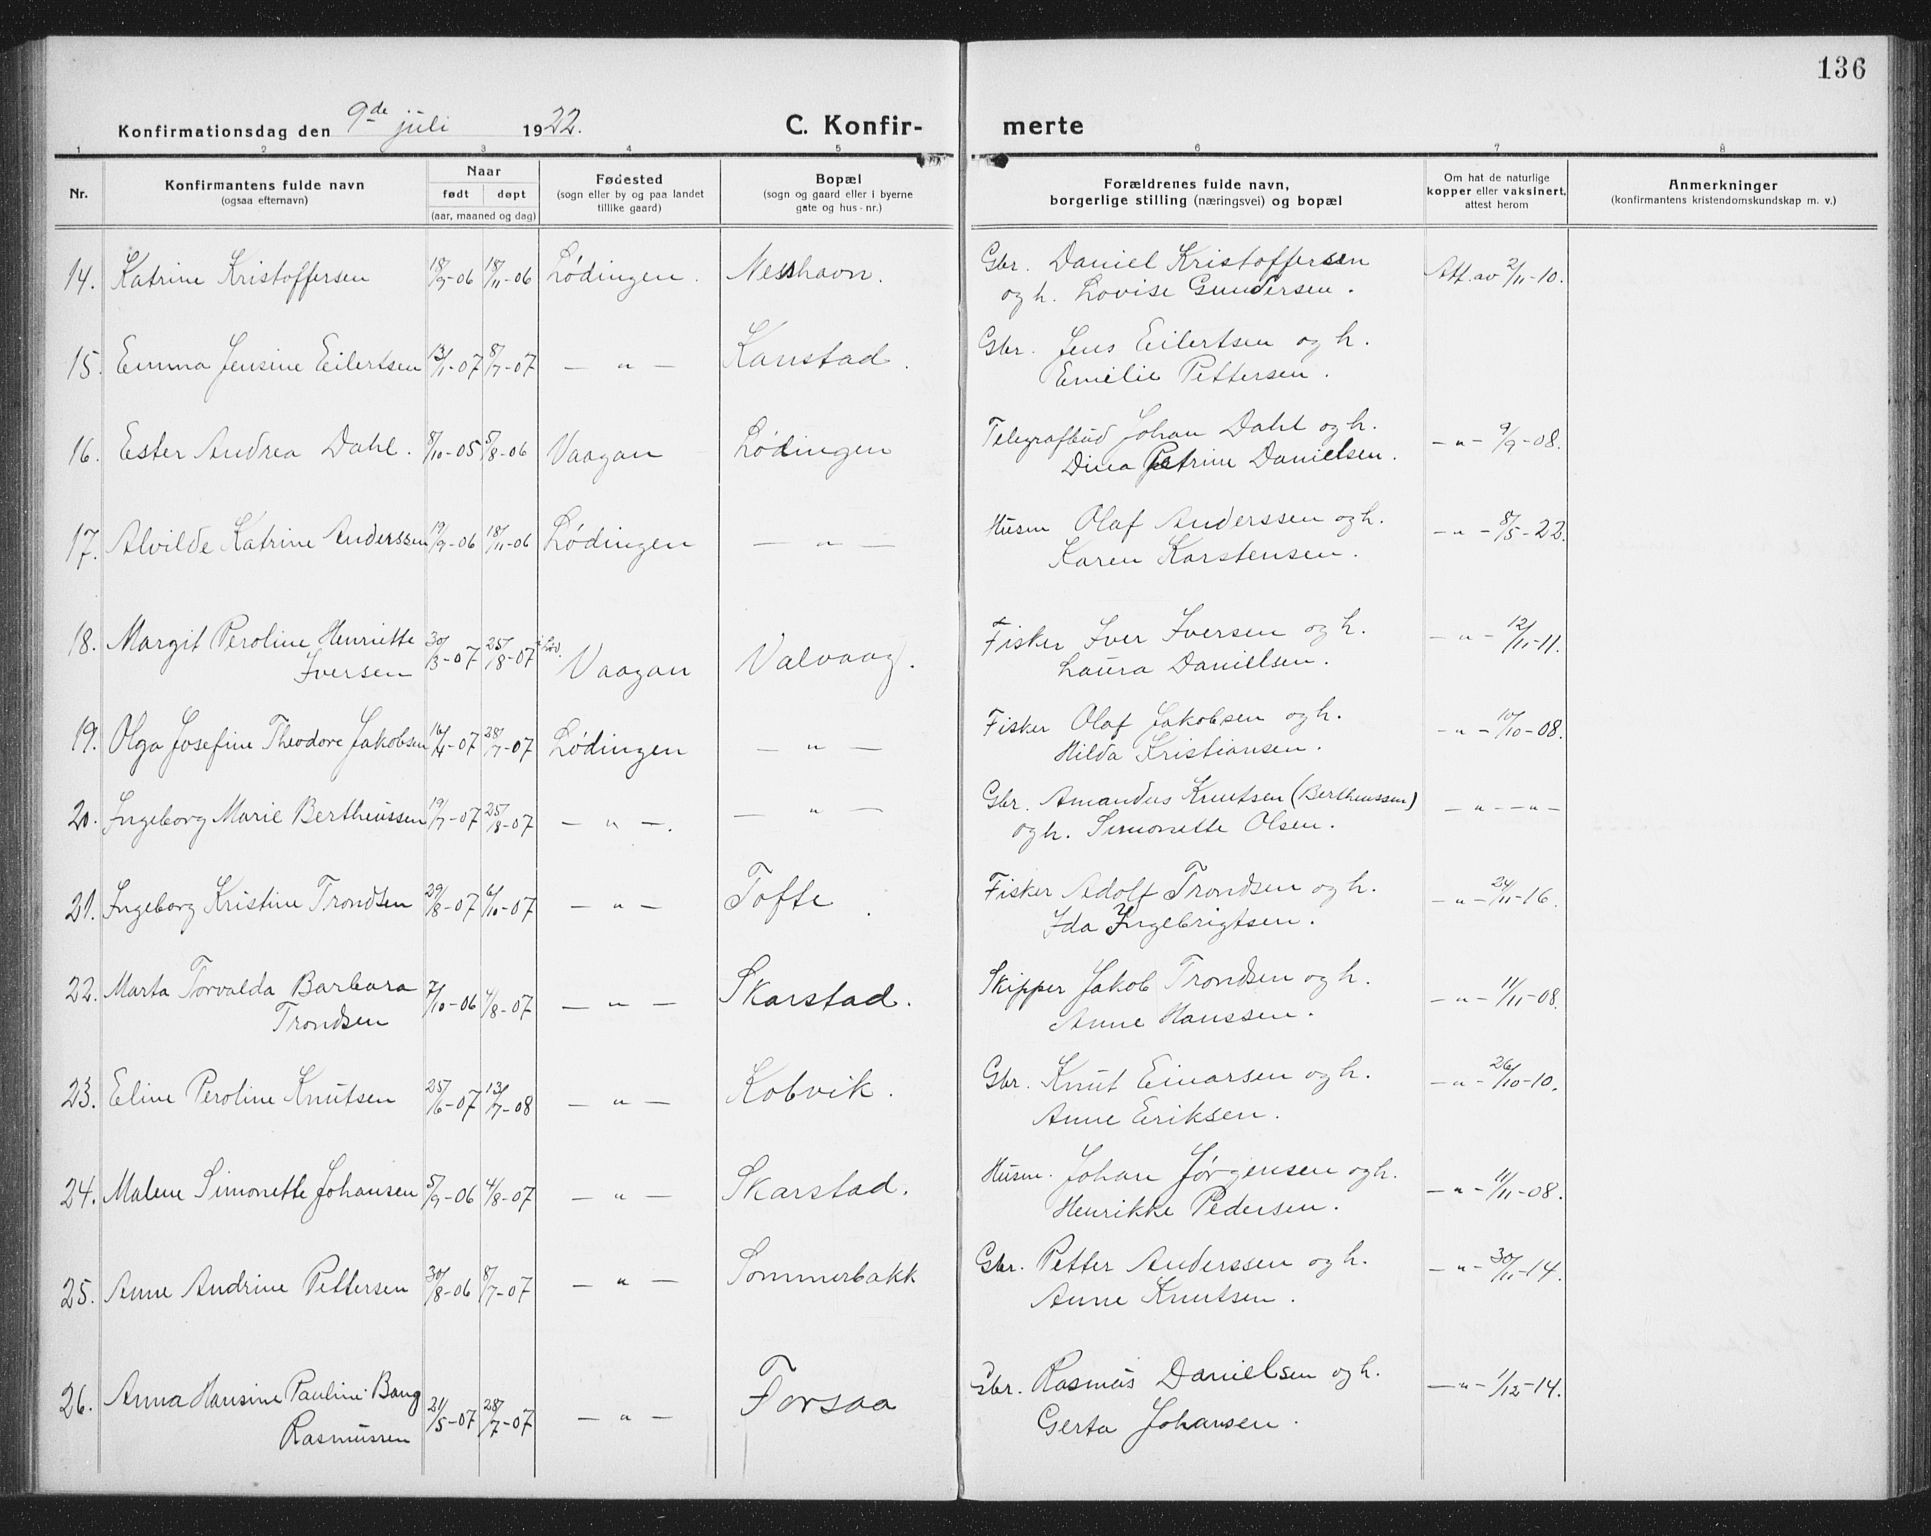 136
Konfirmationsdag den 9de juli 1922. C. Konfir- merte
1 2 3 4 5 6 7 8
Nr. Konfirmantens fulde navn (ogsaa efternavn) Naar født døpt (aar, maaned og dag) Fødested (sogn eller by og paa landet tillike gaard) Bopæl (sogn og gaard eller i byerne gate og hus-nr.) Forældrenes fulde navn, borgerlige stilling (næringsvei) og bopæl Om hat de naturlige kopper eller vaksinert, attest herom Anmerkninger (konfirmantens kristendomskundskap m. v.)
14. Katrine Kristoffersen 18/9-06 18/11-06 Lødingen. Neshavn. Gbr. Daniel Kristoffersen Att. av 2/11-10.
og h. Lovise Gundersen.
15. Emma Jensine Eilertsen 13/1-07 8/7-07 — " — Kanstad. Gbr. Jens Eilertsen og h.
Emelie Pettersen.
16. Ester Andrea Dahl. 8/10-05 5/8-06 Vaagan Lødingen Telegrafbud Johan Dahl og h. — " — 9/9-08.
Dina Petrine Danielsen.
17. Alvilde Katrine Anderssen 19/9-06 18/11-06 Lødingen — " — Husm Olaf Anderssen og h. — " — 8/5-22.
Karen Karstensen.
18. Margit Peroline Henriette 30/3-07 25/8-07 i Lød. Vaagan Valvaag. Fisker Iver Iversen og h. — " — 12/11-11.
Iversen Laura Danielsen.
19. Olga Josefine Theodore Jakobsen 16/4-07 28/7-07 Lødingen — " — Fisker Olaf Jakobsen og h. — " — 10/10-08.
Hilda Kristiansen.
20. Ingeborg Marie Bertheussen 19/7-07 25/8-07 — " —. — " — Gbr. Amandus Knutsen (Bertheussen) — " — — " —
og h. Simonette Olsen.
21. Ingeborg Kristine Trondsen 29/8-07 6/10-07 — " — Tofte. Fisker Adolf Trondsen og h. — " — 24/11-16.
Ida Ingebrigtsen.
22. Marta Torvalda Barbara 7/10-06 4/8-07 — " — Skarstad. Skipper Jakob Trondsen og h. — " — 11/11-08.
Trondsen Anne Hanssen.
23. Eline Peroline Knutsen 25/6-07 13/7-08 — " — Kobvik. Gbr. Knut Einarsen og h. — " — 26/10-10.
Anne Eriksen.
24. Malene Simonette Johansen 5/9-06 4/8-07 — " — Skarstad. Husm. Johan Jørgensen og h. — " — 11/11-08.
Henrikke Pedersen.
25. Anne Andrine Pettersen 30/8-06 8/7-07 — " — Sommerbakk Gbr. Petter Anderssen og h. — " — 30/11-14.
Anne Knutsen.
26. Anna Hansine Pauline Bang 21/5-07 28/7-07 — " — Forsaa Gbr. Rasmus Danielsen og h. — " — 1/12-14.
Rasmussen Gerta Johansen.